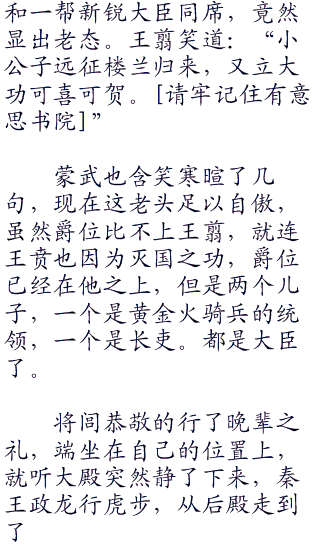 和一帮新锐大臣同席，竟然
显出老态。王翦笑道：“小
公子远征楼兰归来，又立大
功可喜可贺。[请牢记住有意
思书院]”
蒙武也含笑寒暄了几
句，现在这老头足以自傲，
虽然爵位比不上王翦，就连
王贲也因为灭国之功，爵位
已经在他之上，但是两个儿
子，一个是黄金火骑兵的统
领，一个是长吏。都是大臣
了。
将闾恭敬的行了晚辈之
礼，端坐在自己的位置上，
就听大殿突然静了下来，秦
王政龙行虎步，从后殿走到
了